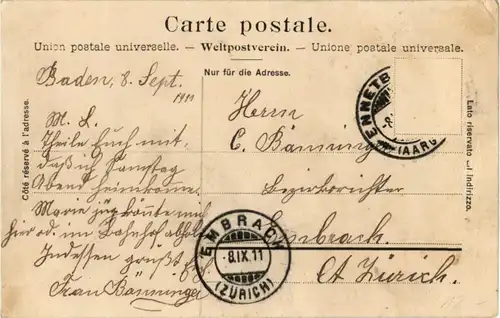 Carte postale.
Union postale universelle. — Weltpostverein. — Unione postale universale.
Nur für die Adresse.
Côté réservé à l'adresse.
Lato riservato all indirizzo.
Baden, 8. Sept.
M. L.
Theile Euch mit,
daß ich Samstag
Abend heimkomme.
Marie
hier od. im Bahnhof abholen
Indessen grüßt
Frau Bänninger
Herrn
C. Bänninger
Bezirksrichter
Embrach.
Ct. Zürich.
ENNETB
-8.
(AARG
EMBRACH
-8.IX.11
(ZÜRICH)